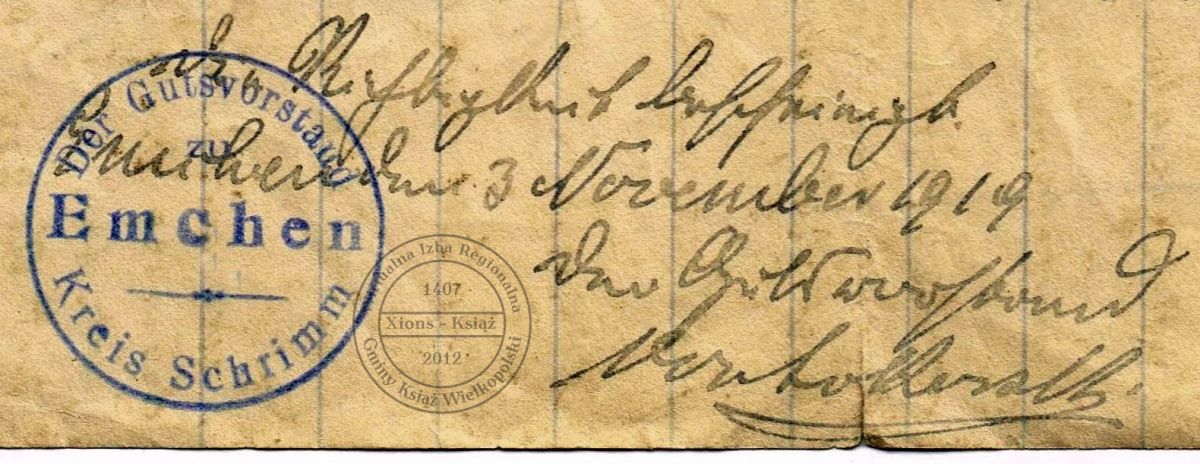 Der Gutsvorstand
zu
Emchen
Kreis Schrimm
Die Richtigkeit bescheinigt
Emchen den 3 November 1919
Der Gutsvorstand
Izba Regionalna
1407
Xions - Książ
2012
Gminy Książ Wielkopolski